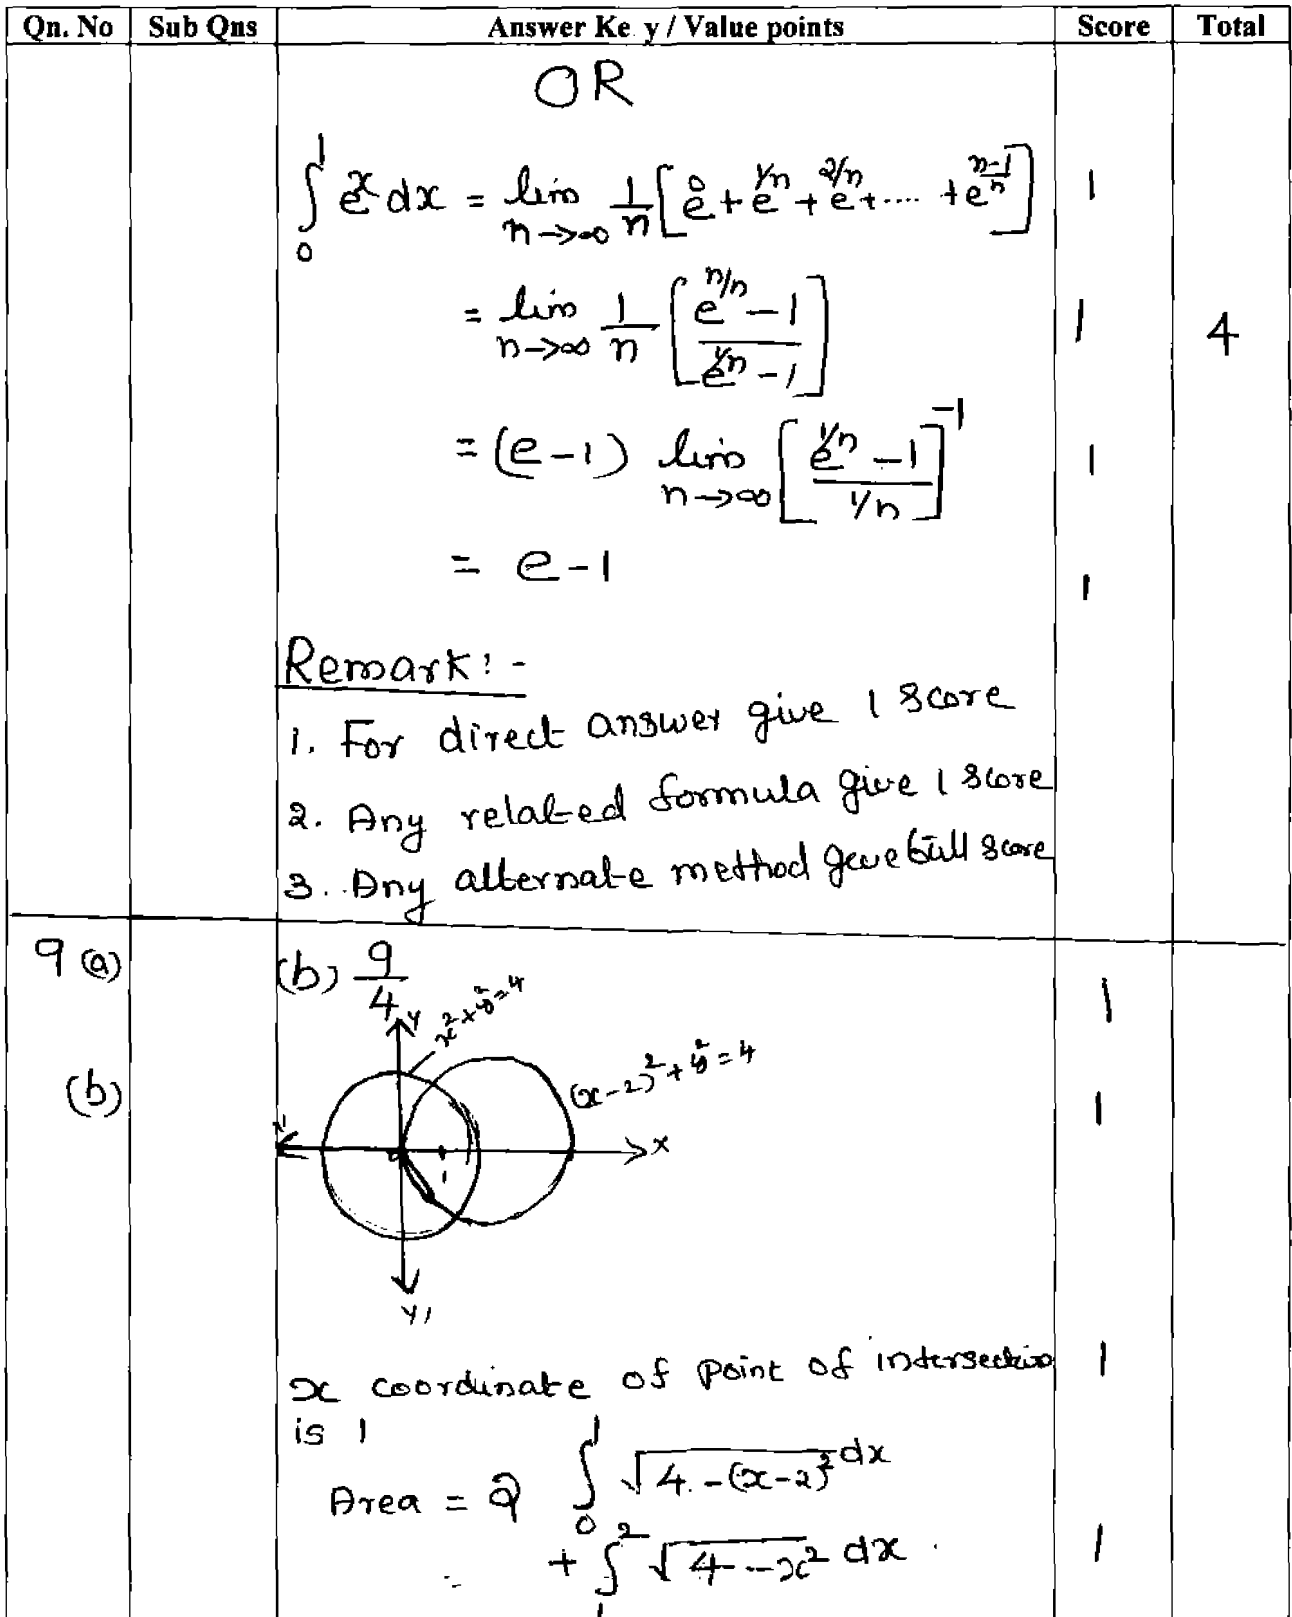 Qn. No Sub Qns Answer Ke y / Value points Score Total
OR
∫₀¹ eˣ dx = lim n→∞ 1/n [e⁰ + e^1/n + e^2/n + .... + e^(n-1)/n] 1
= lim n→∞ 1/n [(e^n/n − 1)/(e^1/n − 1)] 1 4
= (e−1) lim n→∞ [(e^1/n − 1)/(1/n)]⁻¹ 1
= e−1 1
Remark:-
1. For direct answer give 1 score
2. Any related formula give 1 score
3. Any alternate method give full score
9 (a) (b) 9/4 1
(b) 1
Y
x²+y²=4
(x−2)²+y²=4
x' 0 1 x
Y'
x coordinate of point of intersection 1
is 1
Area = 2 ∫₀¹ √(4−(x−2)²) dx
+ ∫₁² √(4−x²) dx . 1